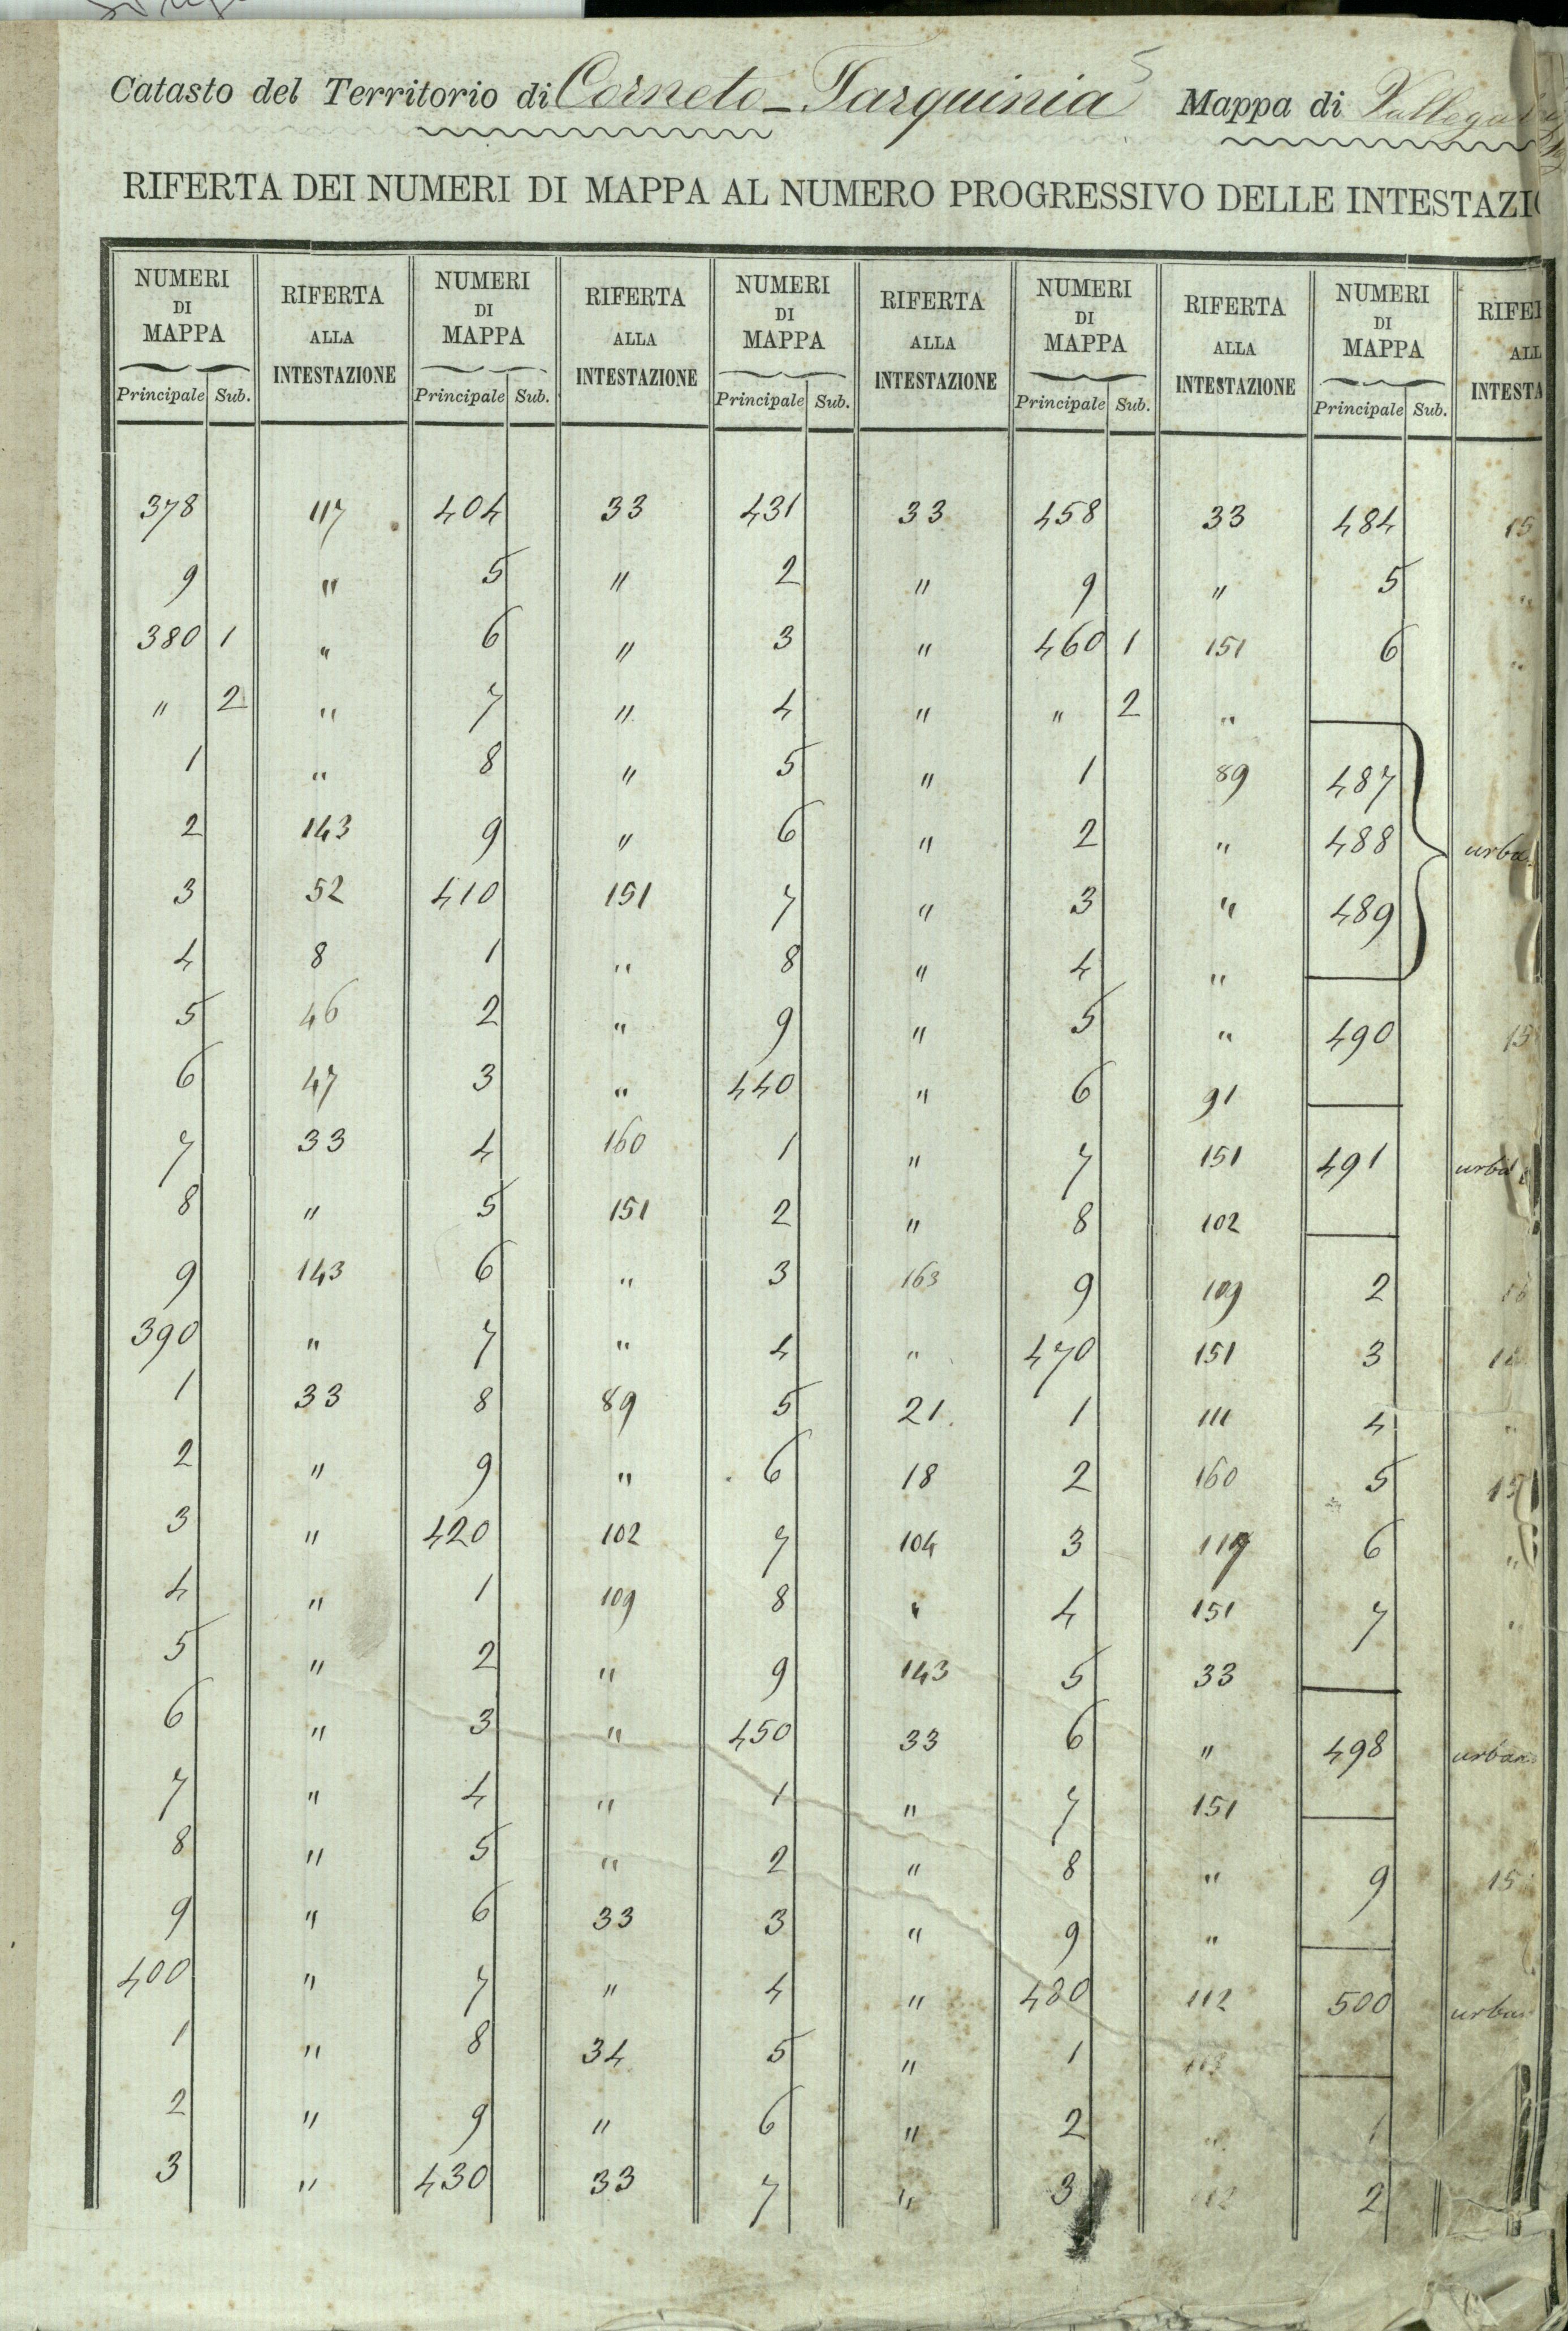 Catasto del Territorio di Corneto-Tarquinia Mappa di
RIFERTA DEI NUMERI DI MAPPA AL NUMERO PROGRESSIVO DELLE INTESTAZI
NUMERI DI MAPPA RIFERTA ALLA INTESTAZIONE NUMERI DI MAPPA RIFERTA ALLA INTESTAZIONE NUMERI DI MAPPA RIFERTA ALLA INTESTAZIONE NUMERI DI MAPPA RIFERTA ALLA INTESTAZIONE NUMERI DI MAPPA RIFER ALL INTESTA
Principale Sub. Principale Sub. Principale Sub. Principale Sub. Principale Sub.
378 117 404 33 431 33 458 33 484 15
9 " 5 " 2 " 9 " 5 "
380 1 " 6 " 3 " 460 1 151 6 "
" 2 " 7 " 4 " " 2 "
1 " 8 " 5 " 1 89 487
2 143 9 " 6 " 2 " 488 urba
3 52 410 151 7 " 3 " 489
4 8 1 " 8 " 4 "
5 46 2 " 9 " 5 " 490 15
6 47 3 " 440 " 6 91
7 33 4 160 1 " 7 151 491 urba
8 " 5 151 2 " 8 102
9 143 6 " 3 163 9 109 2
390 " 7 " 4 " 470 151 3
1 33 8 89 5 21 1 111 4 "
2 " 9 " 6 18 2 160 5 15
3 " 420 102 7 104 3 117 6 "
4 " 1 109 8 " 4 151 7 "
5 " 2 " 9 143 5 33
6 " 3 " 450 33 6 " 498 urban
7 " 4 " 1 " 7 151
8 " 5 " 2 " 8 " 9 15
9 " 6 33 3 " 9 "
400 " 7 " 4 " 480 112 500 urban
1 " 8 34 5 " 1 113
2 " 9 " 6 " 2 " 1
3 " 430 33 7 " 3 112 2